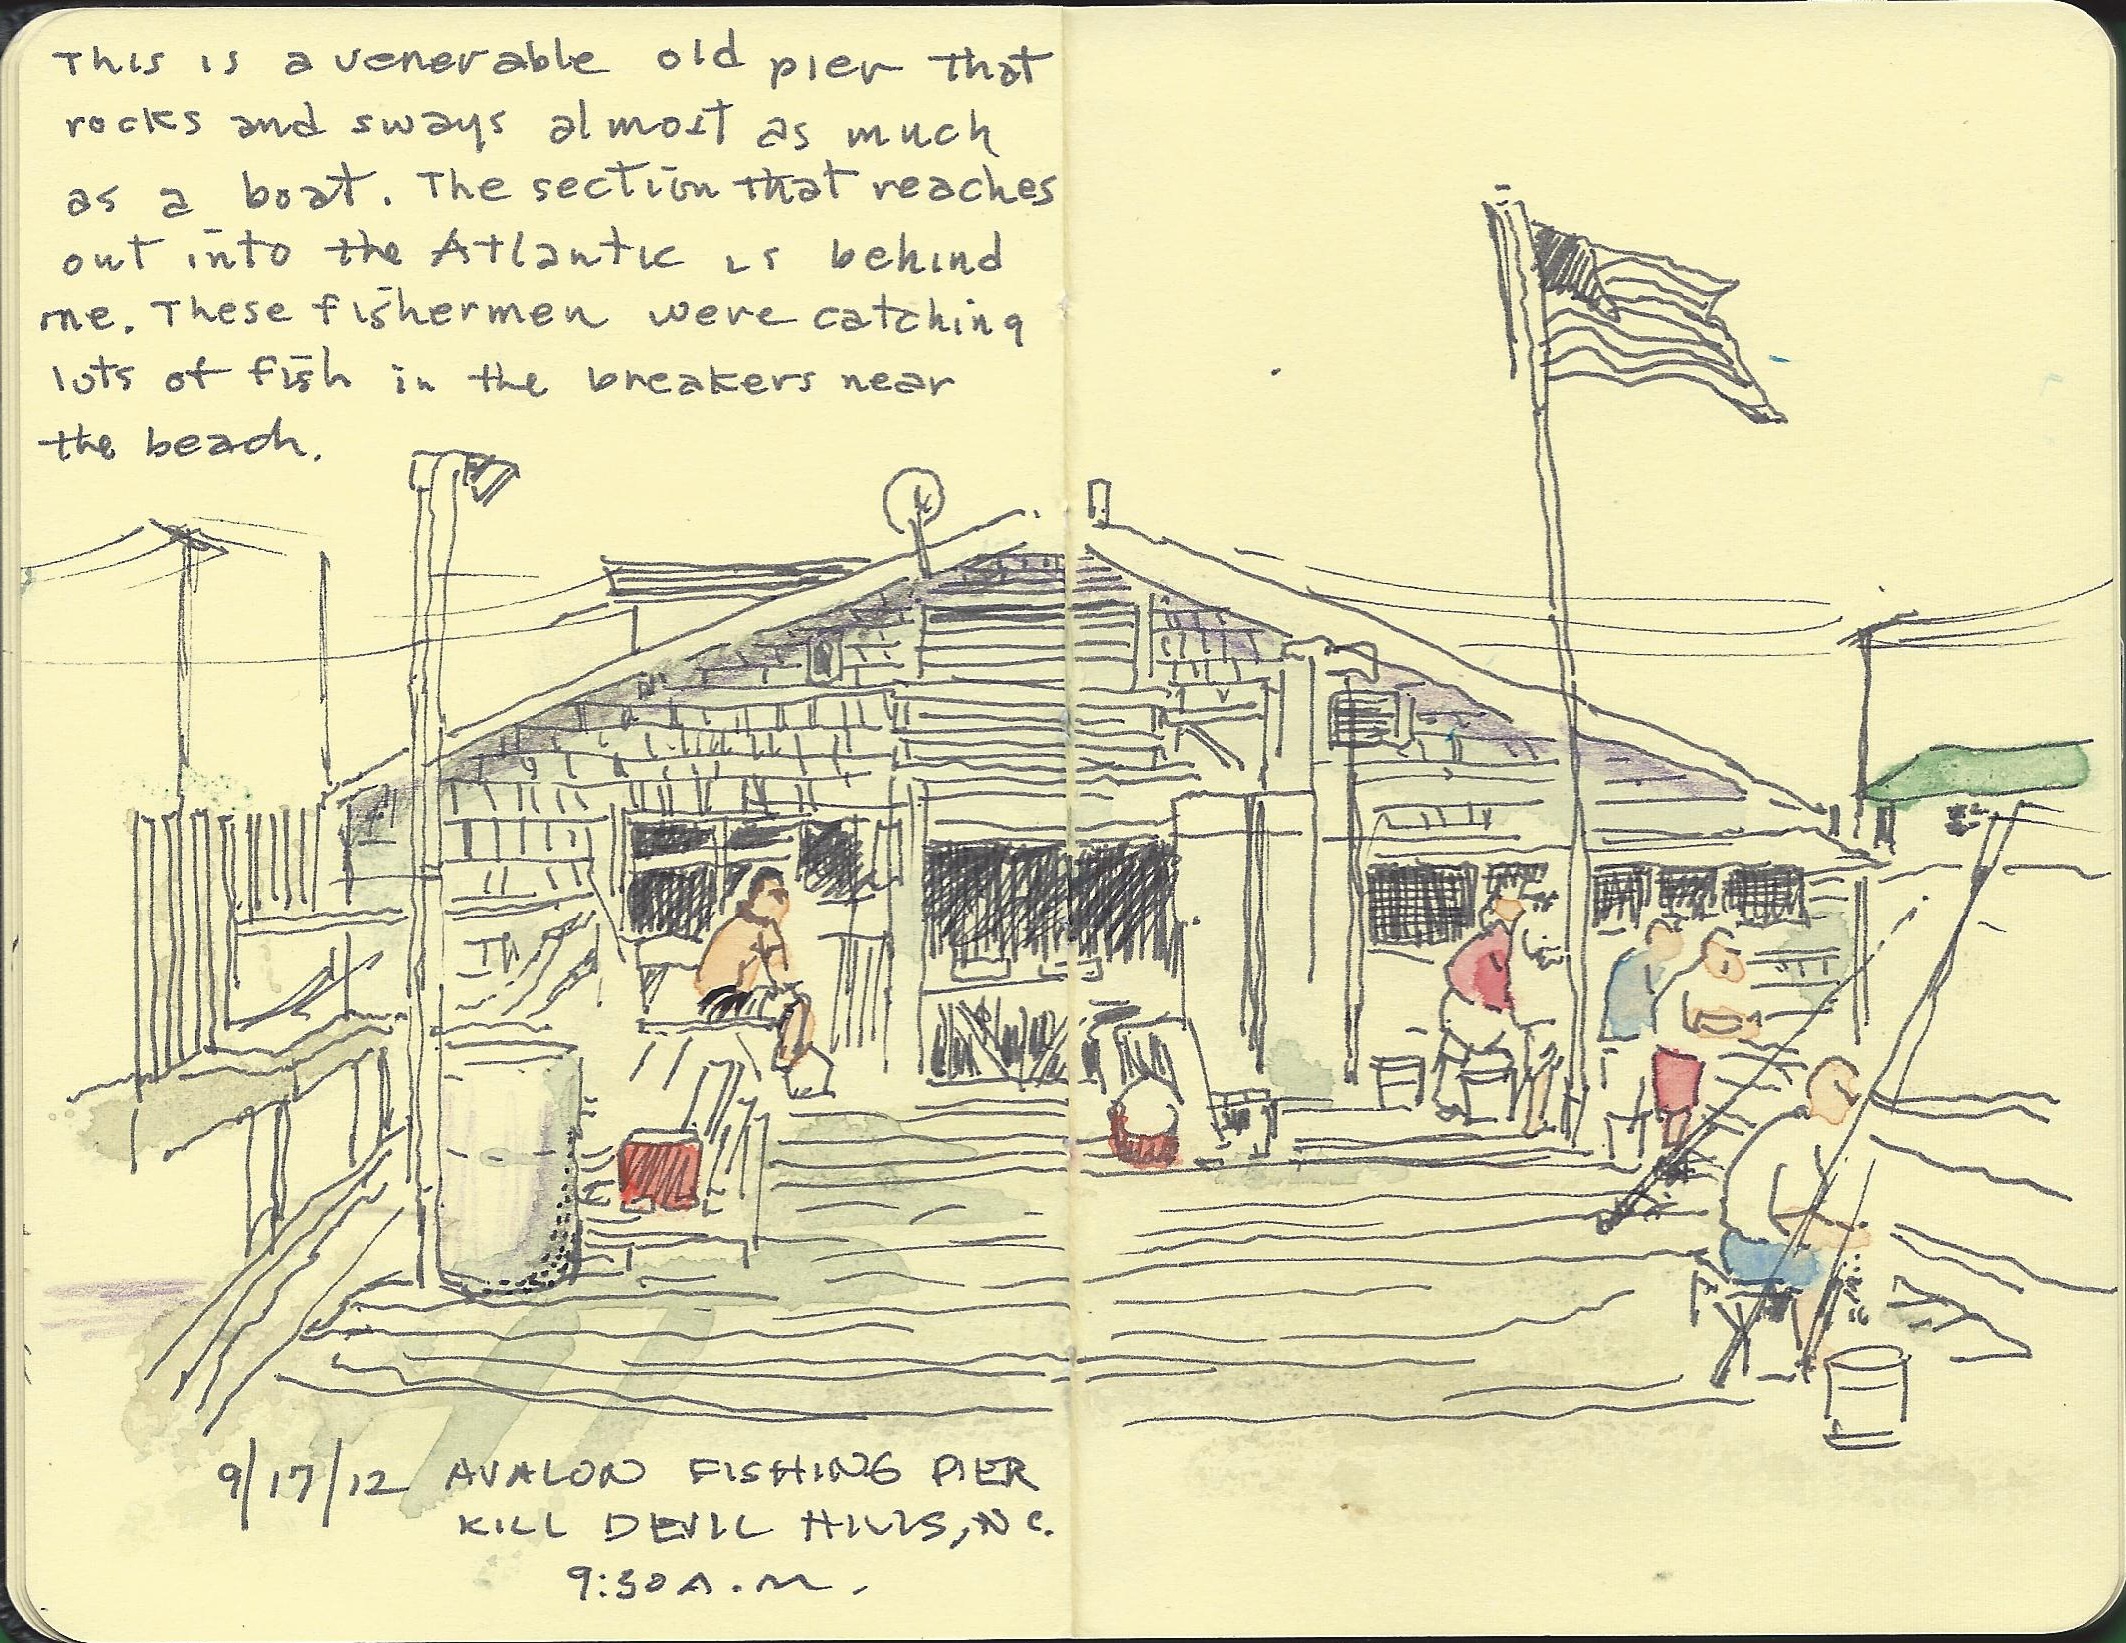 This is a venerable old pier that
rocks and sways almost as much
as a boat. The section that reaches
out into the Atlantic is behind
me. These fishermen were catching
lots of fish in the breakers near
the beach.
9/17/12 AVALON FISHING PIER
KILL DEVIL HILLS, NC.
9:30 A.M.